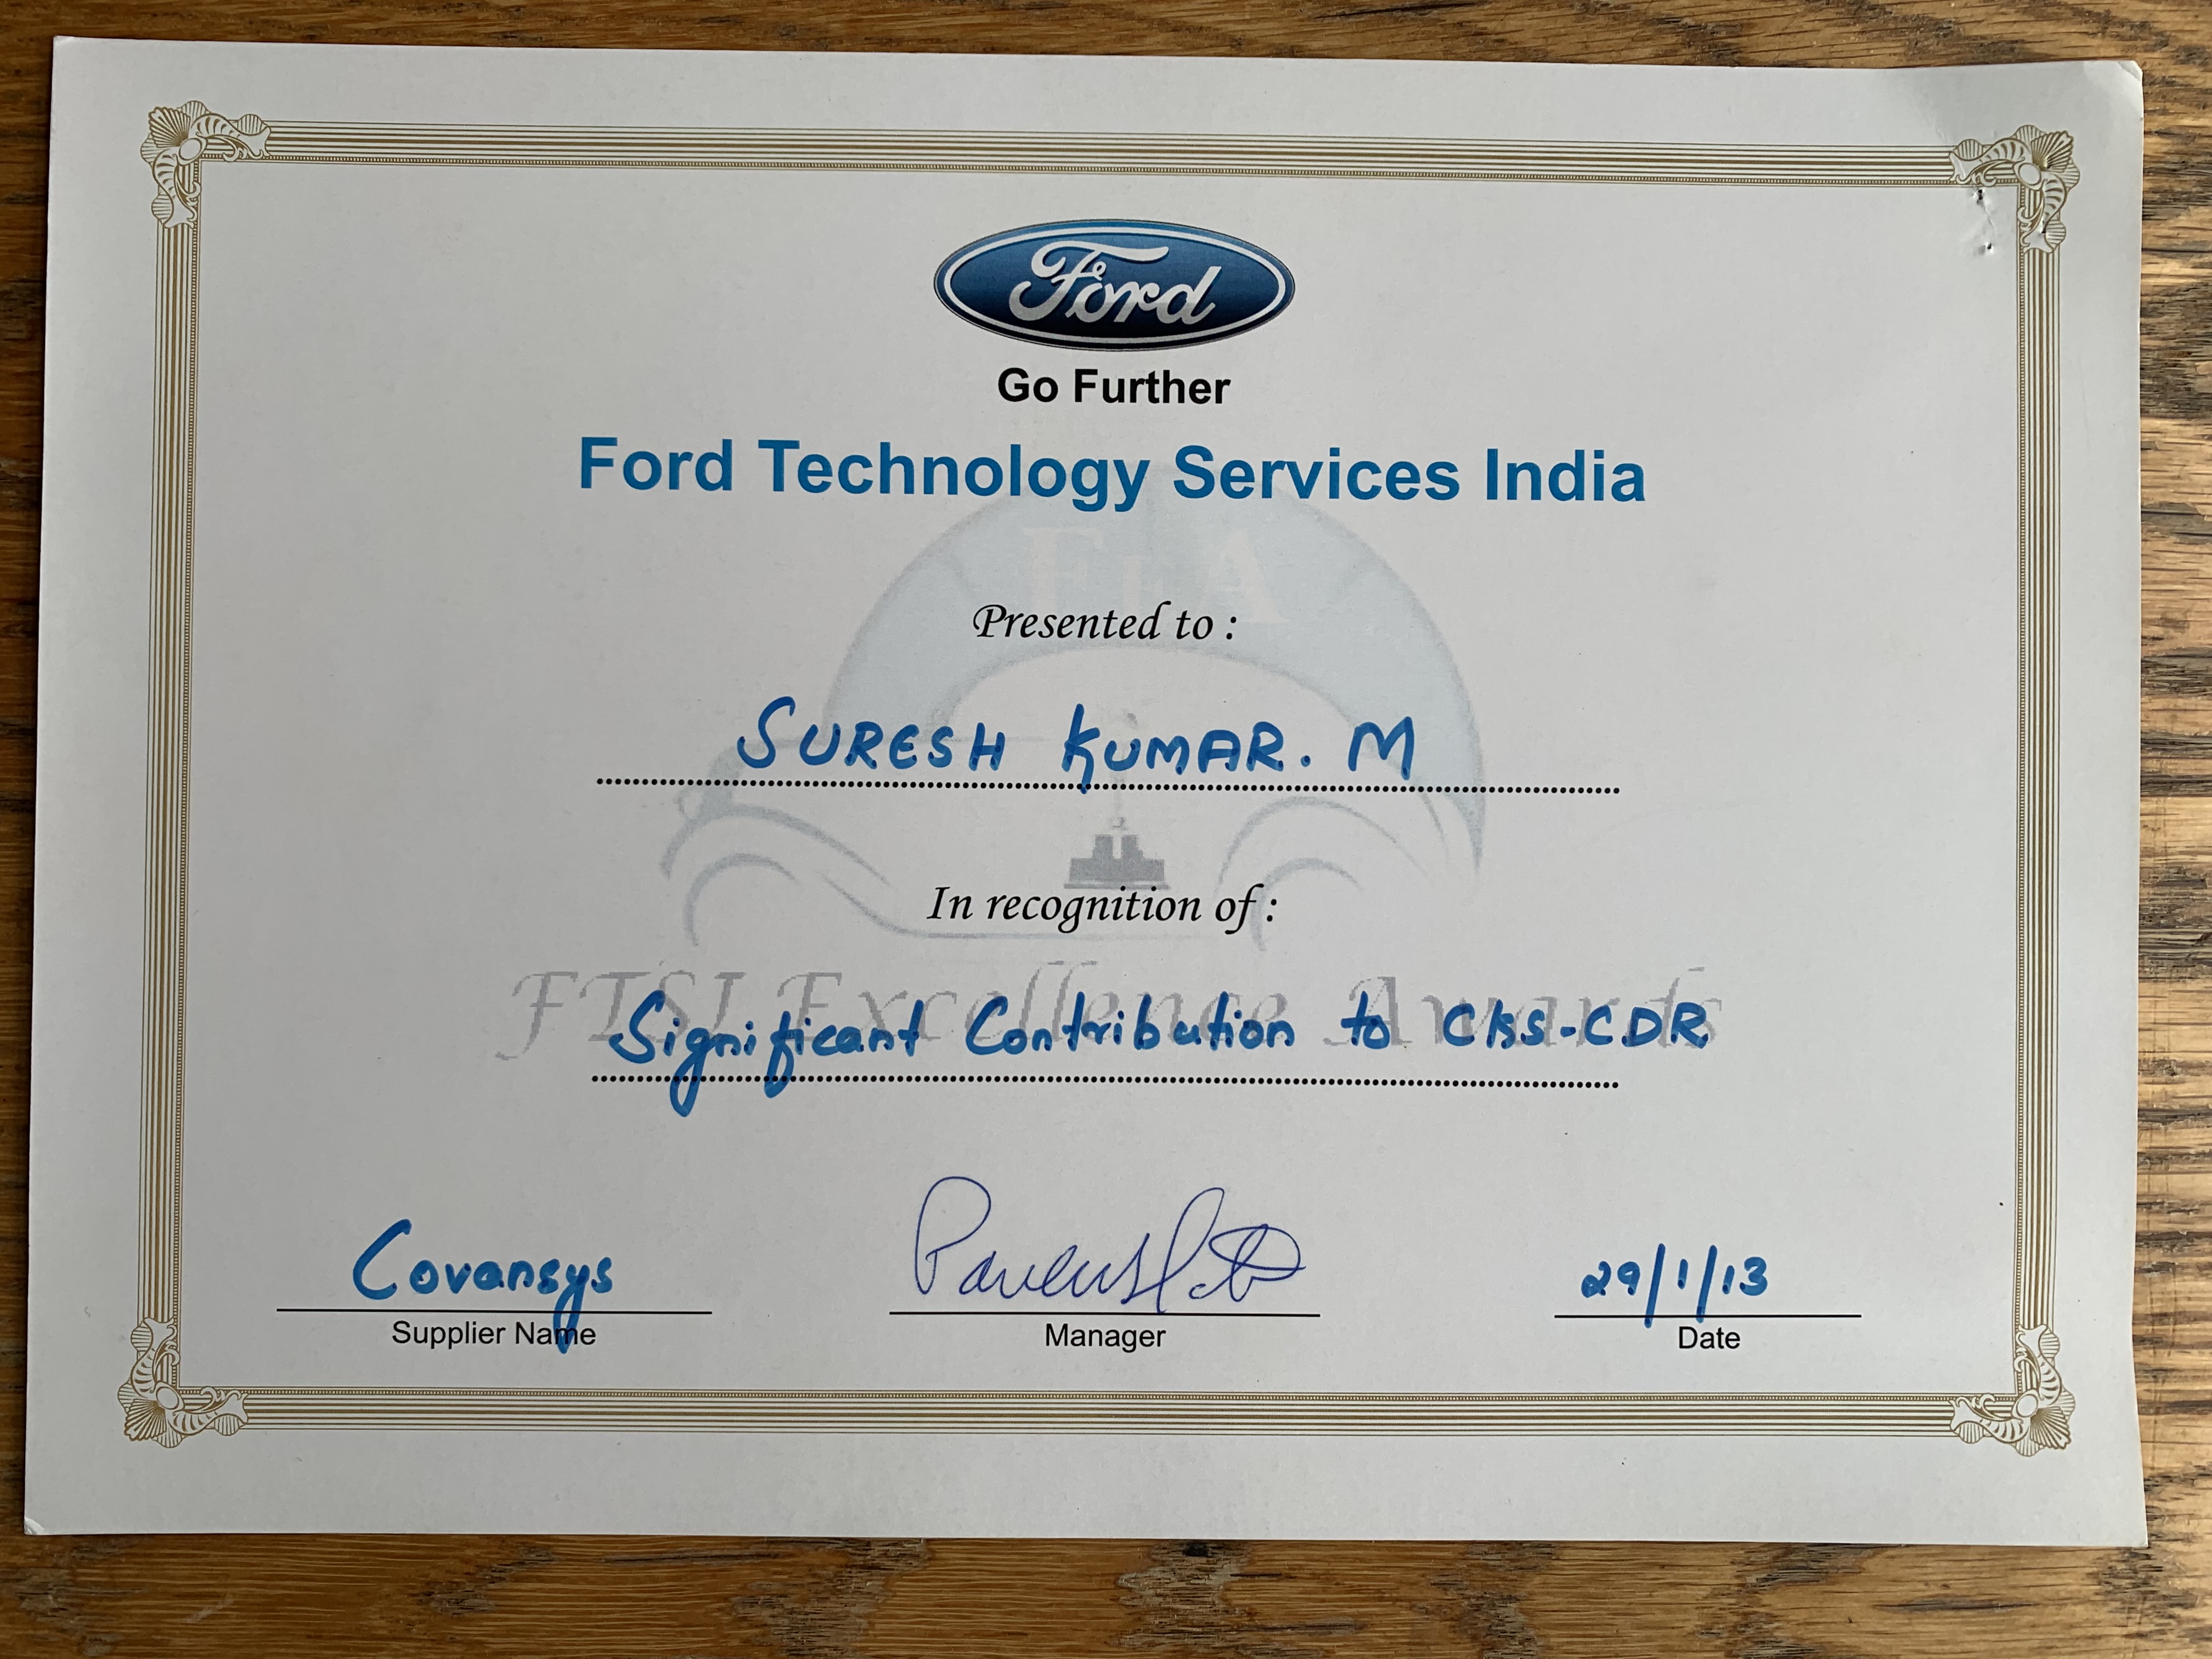 Ford
Go Further
Ford Technology Services India
FEA
Presented to :
SURESH KUMAR. M
In recognition of :
FTSI Excellence Awards
Significant Contribution to CKS-CDR
Covansys
Supplier Name
Manager
29/1/13
Date